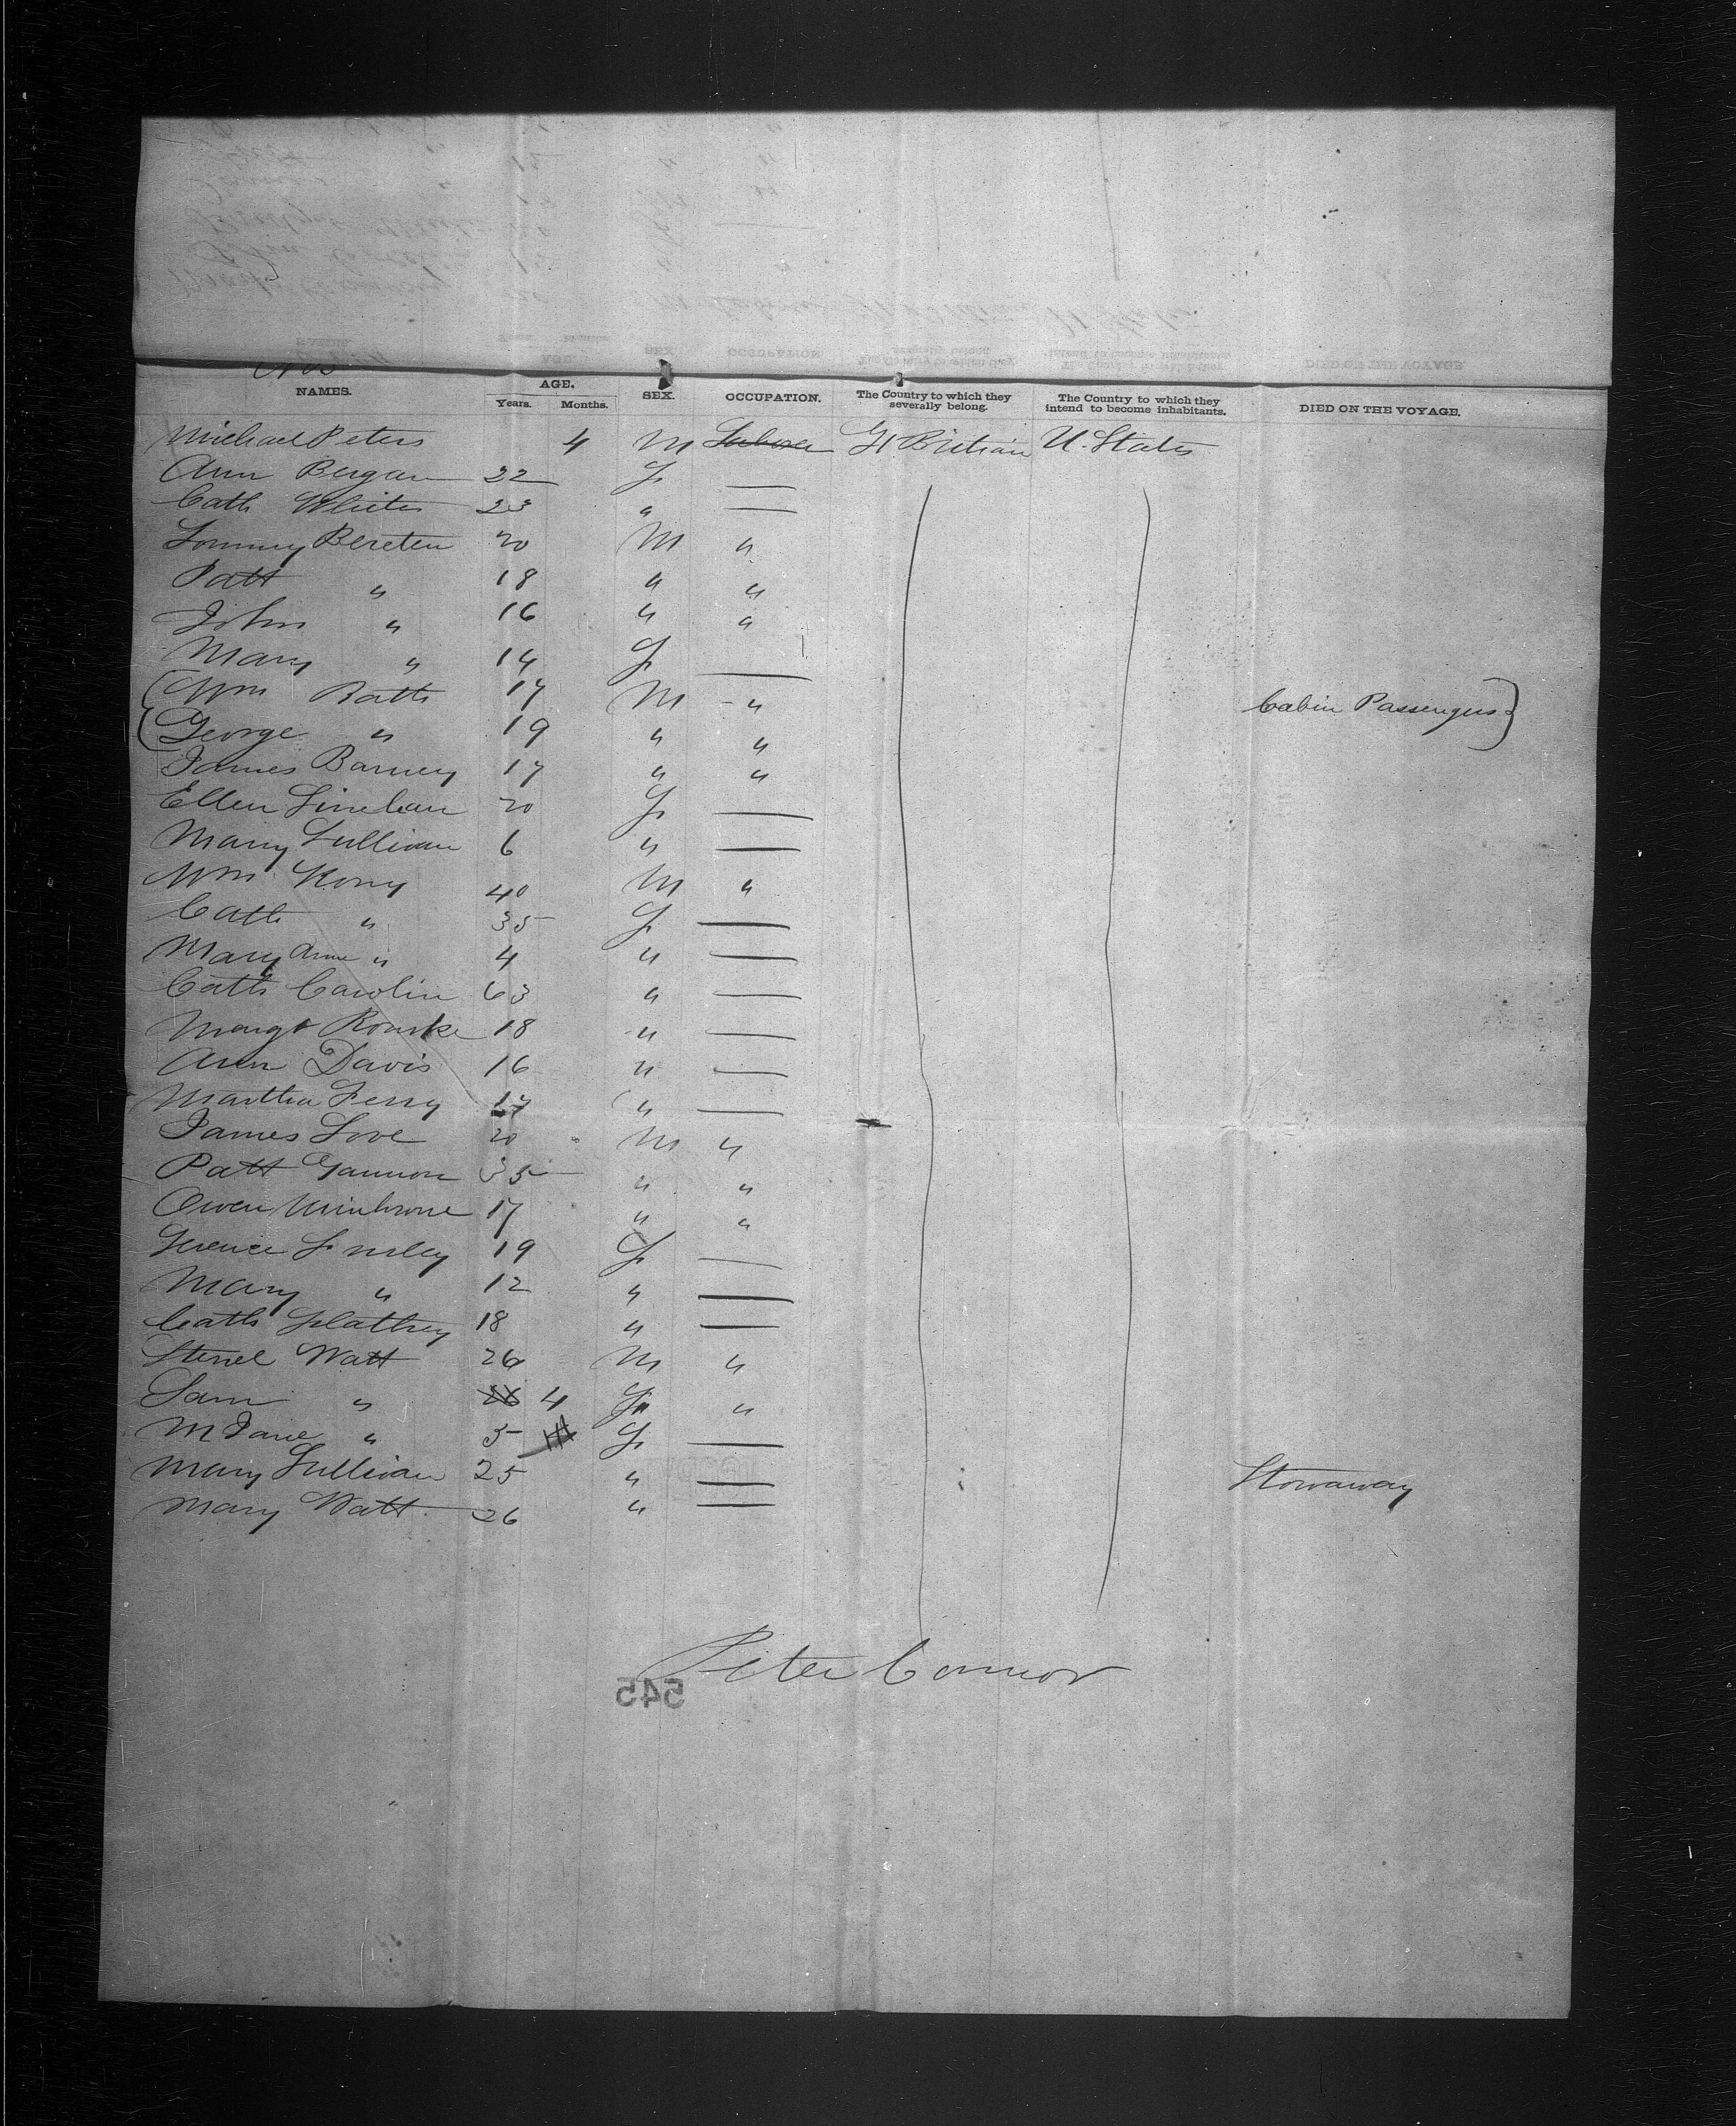 NAMES. AGE. Years. Months. SEX. OCCUPATION. The Country to which they severally belong. The Country to which they intend to become inhabitants. DIED ON THE VOYAGE.
Michael Peters 4 M Laborer Gt Britain U. States
Ann Bergan 22 F —
Cath White 23 " —
Tommy Bereten 20 M "
Patt " 18 " "
John " 16 " "
Mary " 14 F —
Wm Batts 17 M " Cabin Passengers
George " 19 " "
James Barney 17 " "
Ellen Linehan 20 F —
Mary Sullivan 6 " —
Wm Kony 40 M "
Cath " 35 F —
Mary Anne " 4 " —
Cath Carolin 63 " —
Margt Rourke 18 " —
Ann Davis 16 " —
Martha Ferry 17 " —
James Love 20 M "
Patt Gannon 35 " "
Owen 17 " "
19 F —
Mary " 12 " —
Cath 18 " —
Watt 26 M "
Sam " 26 4 "
M Jane " 5 F —
Mary Sullivan 25 " — Stowaway
Mary Watt 26 " —
Peter Connor
545